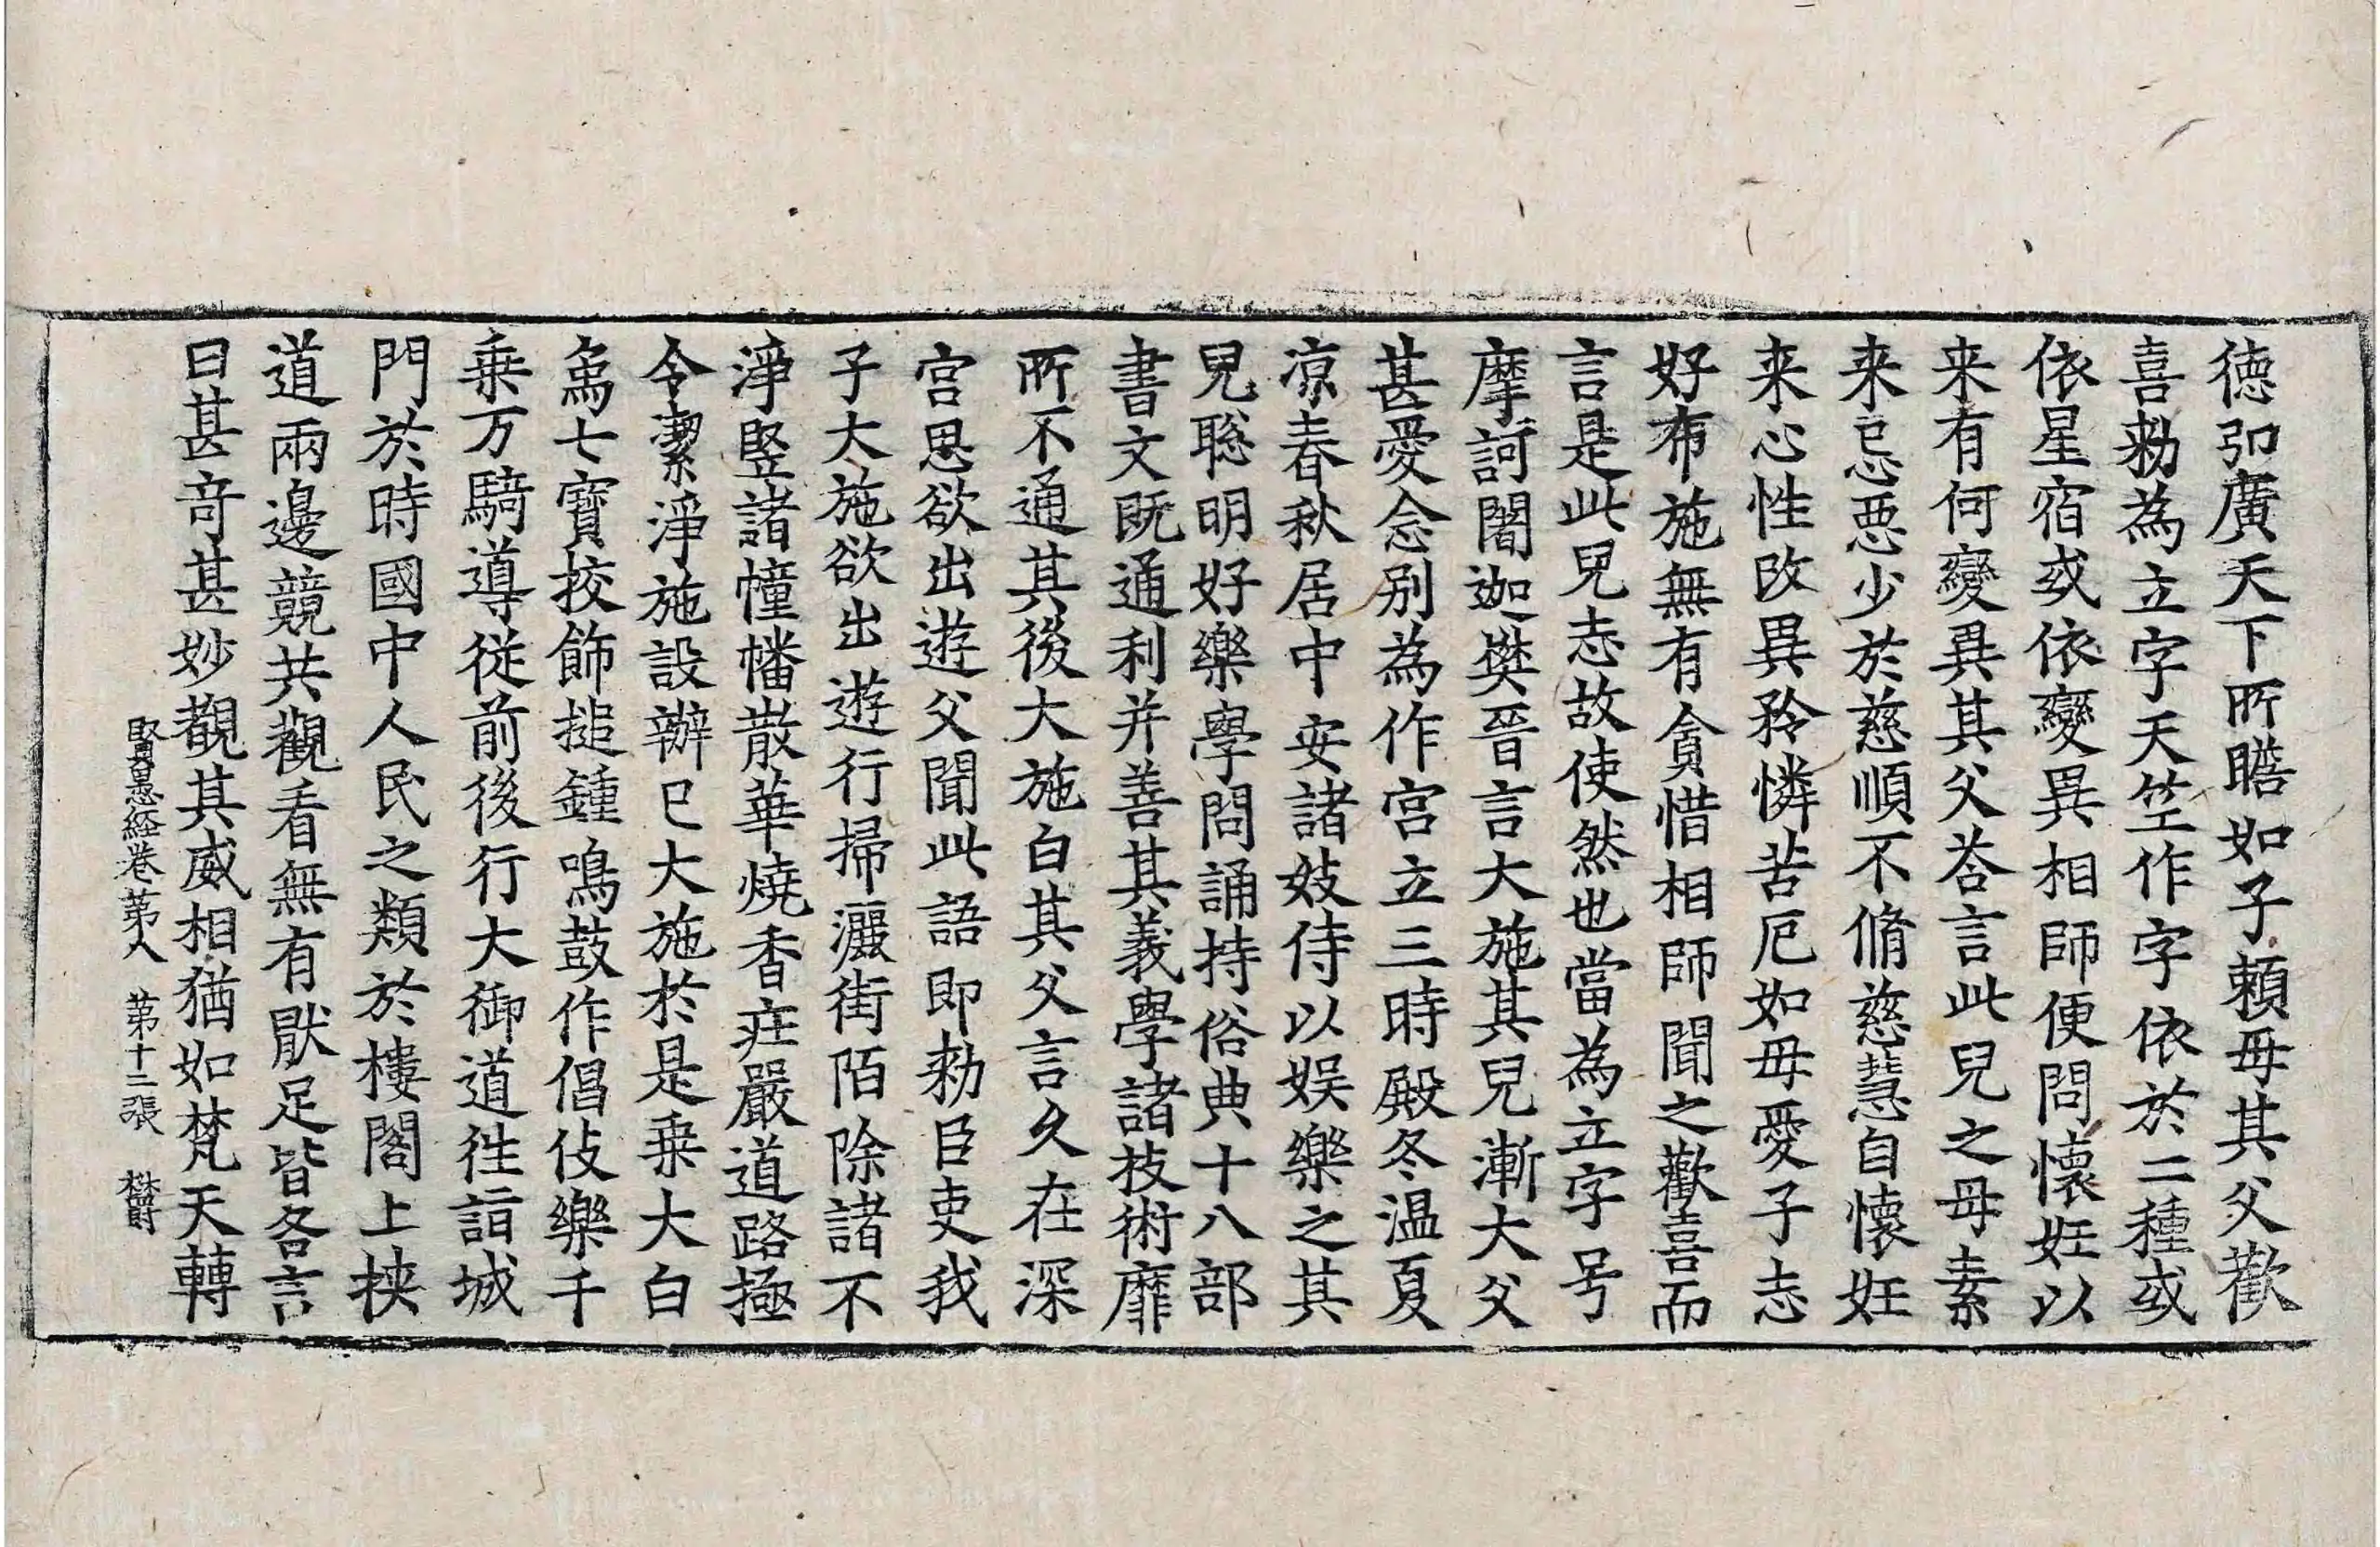 徳弘廣天下所瞻如子賴母其父歡
喜勑為立字天竺作字依於二種或
依星宿或依變異相師便問懷妊以
来有何變異其父荅言此兒之母素
来忌惡少於慈順不脩慈慧自懷妊
来心性改異矜憐苦厄如母愛子志
好布施無有貪惜相師聞之歡喜而
言是此兒志故使然也當為立字号
摩訶闍迦樊晉言大施其兒漸大父
甚愛念别為作宫立三時殿冬温夏
凉春秋居中安諸妓侍以娱樂之其
兒聡明好樂學問誦持俗典十八部
書文既通利并善其義學諸技術靡
所不通其後大施白其父言久在深
宫思欲出遊父聞此語即勑臣吏我
子大施欲出遊行掃灑街陌除諸不
淨竪諸幢幡散華燒香莊嚴道路極
令潔淨施設辦已大施於是乗大白
象七寶挍飾搥鍾鳴鼓作倡伎樂千
乗万騎導從前後行大御道徃詣城
門於時國中人民之類於樓閣上挾
道兩邊競共觀看無有猒足皆各言
曰甚竒甚妙觀其威相猶如梵天轉
賢愚経卷苐八　苐十二張　樊爵